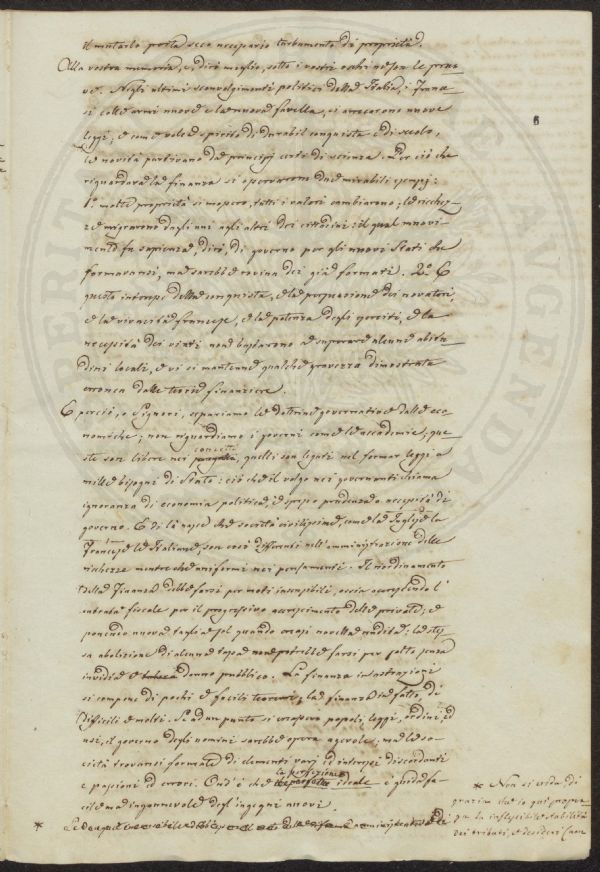 il mutarlo porta seco necessario turbamento di proprietà.
Alla vostra memoria, e, dirò meglio, sotto i vostri occhi ne son le pruo-
ve. Negli ultimi sconvolgimenti politici della Italia, i Fran-
si colle armi nuove e la nuova favella, ci arrecarono nuove
leggi, e come volea spirito di durabil conquista e di secolo,
le novità partivano da principj certi di scienza. Per ciò che
riguardava la finanza si operarono due mirabili esempj:
1.° molte proprietà si mossero, tutti i valori cambiarono; le ricchez-
ze migrarono dagli uni agli altri dei cittadini: il qual movi-
mento fu sapienza, dirò, di governo per gli nuovi Stati che
formavansi, ma sarebbe rovina dei già formati. 2.° E
questo intempo della conquista, e la persuasione dei novatori,
e la vivacità francese, e la potenza degli eserciti, e la
necessità dei vinti non bastarono a superare alcune abitu-
dini locali, e vi si mantenne qualche gravezza dimostrata
erronea dalle teorie finanziere.
E perciò, o Signori, separiamo le dottrine governative dalle eco-
nomiche; non riguardiamo i governi come le accademie; que-
ste son libere nei concetti, quelli son legati nel formar leggi a
mille bisogni di Stato: ciò che il volgo nei governanti chiama
ignoranza di economia politica, è spesso prudenza o necessità di
governo. E di là nasce che società civilissime, come la Inglese la
Francese le Italiane, son così differenti nell'amministrazione delle
richezze mentre che uniformi nei pensamenti. Il riordinamento
della Finanza debbe farsi per moti insensibili, ossia accrescendo l'
entrata fiscale per il progressivo accrescimento delle private; e
ponendo nuova taglia sol quando nasca novella rendita: la stes-
sa abolizione di alcuna tassa non potrebbe farsi per salto senza
invidia e danno pubblico. La finanza in astrazione
si compone di pochi e facili teoremi; la finanza in fatto, di
difficili e molti. Se ad un punto si creassero popoli, leggi, ordini ed
usi, il governo degli uomini sarebbe opera agevole; ma le so-
cietà trovansi formate di elementi varj ed interessi discordanti
e passioni ed errori. Ond'è che la perfezione ideale è guida fa-
cile ma ingannevole degl'ingegni nuovi.
* Non si creda di
grazia che io qui propu-
gni la inflessibile stabilità
dei tributi, e desideri l'am